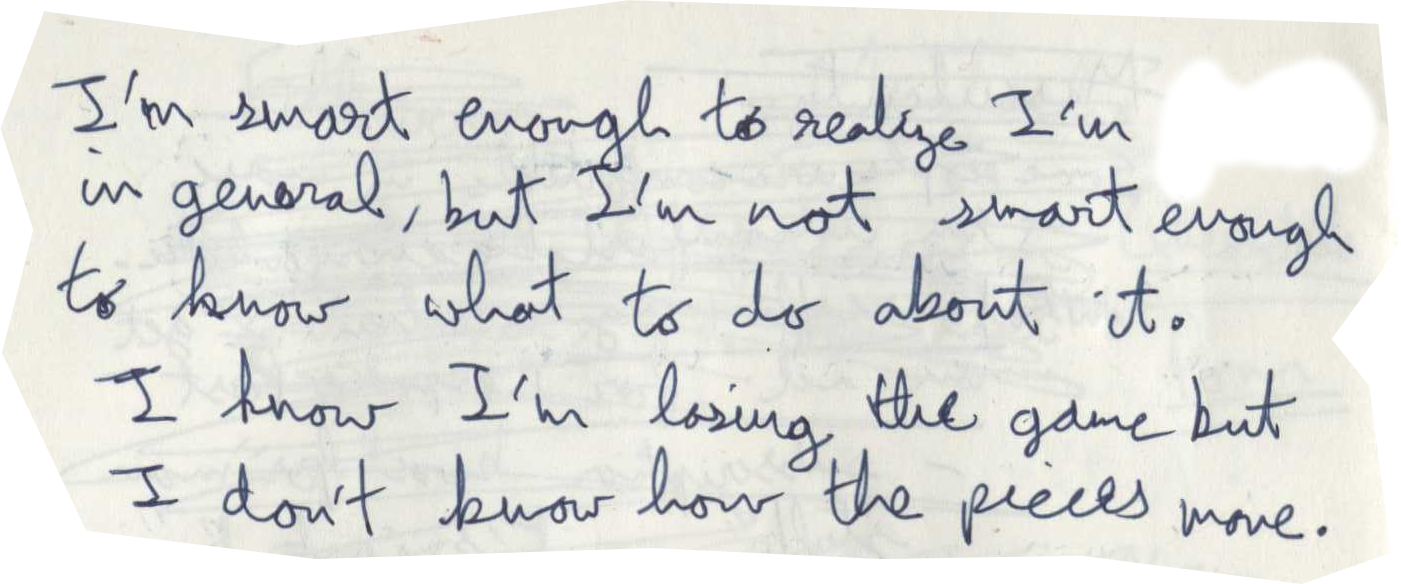 I'm smart enough to realize I'm
in general, but I'm not smart enough
to know what to do about it.
I know I'm losing the game but
I don't know how the pieces move.